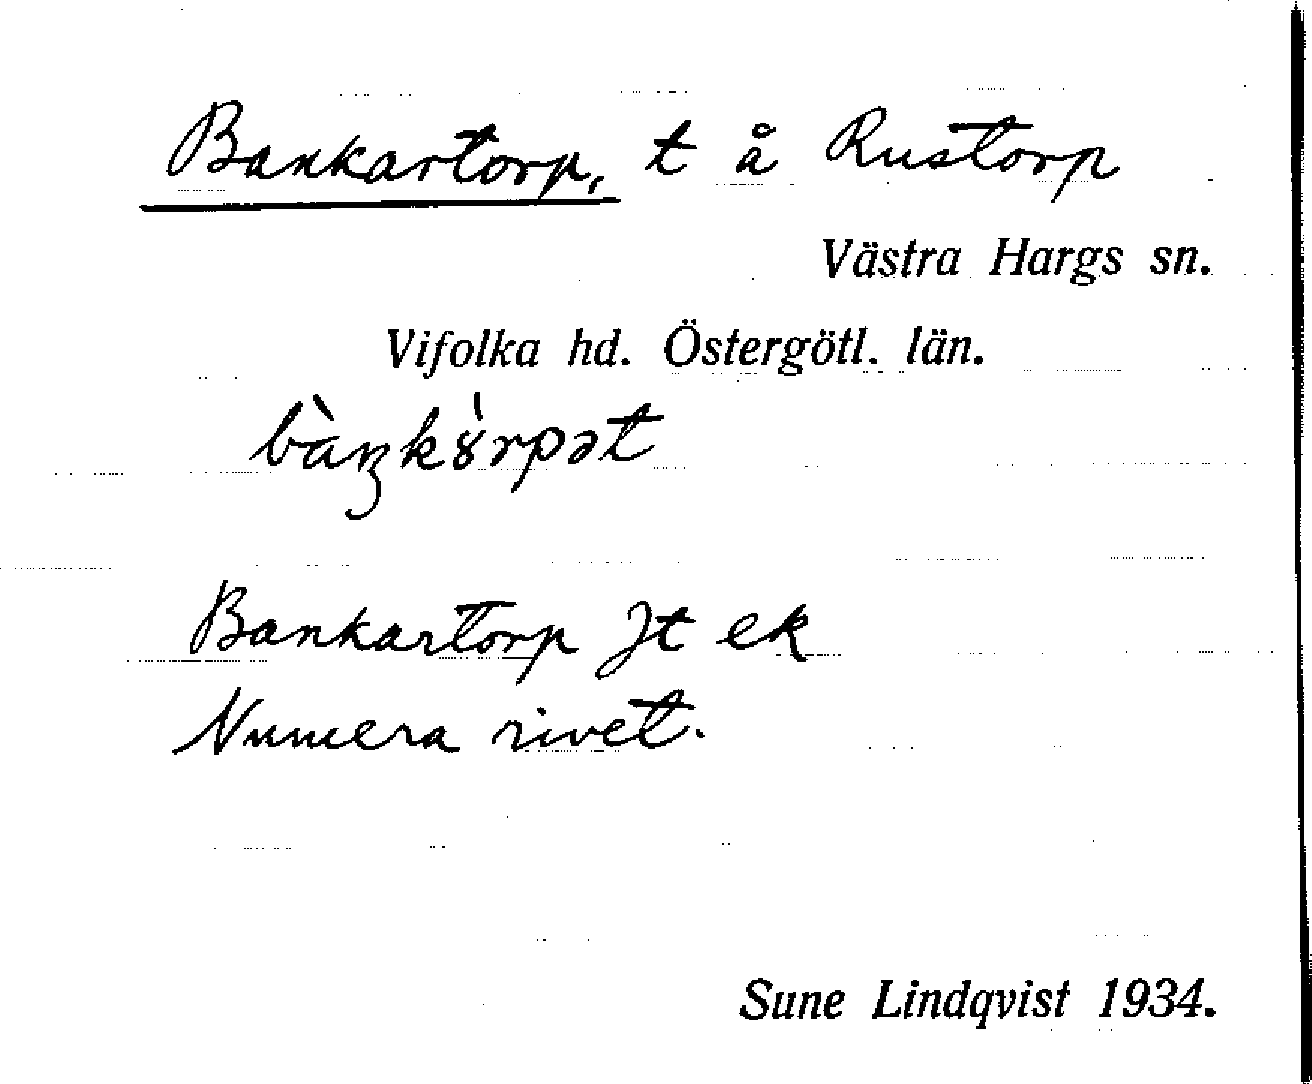 Bankartorp, t å Rustorp
Västra Hargs sn.
Vifolka hd. Östergötl. län.
Bankartorp Jt ek
Numera rivet.
Sune Lindqvist 1934.